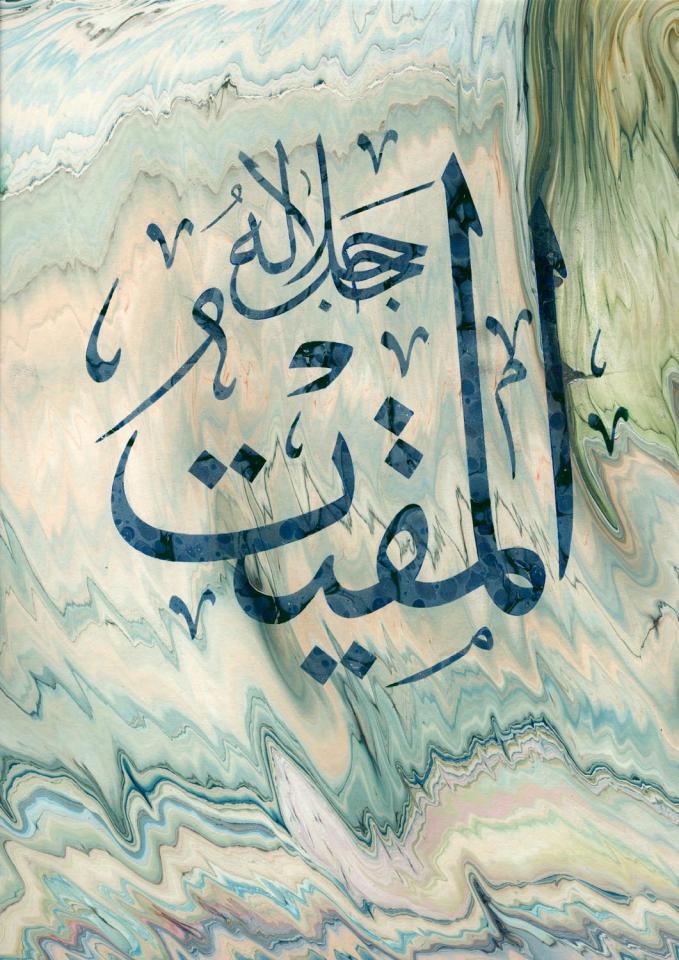 المقيت
جل جلاله